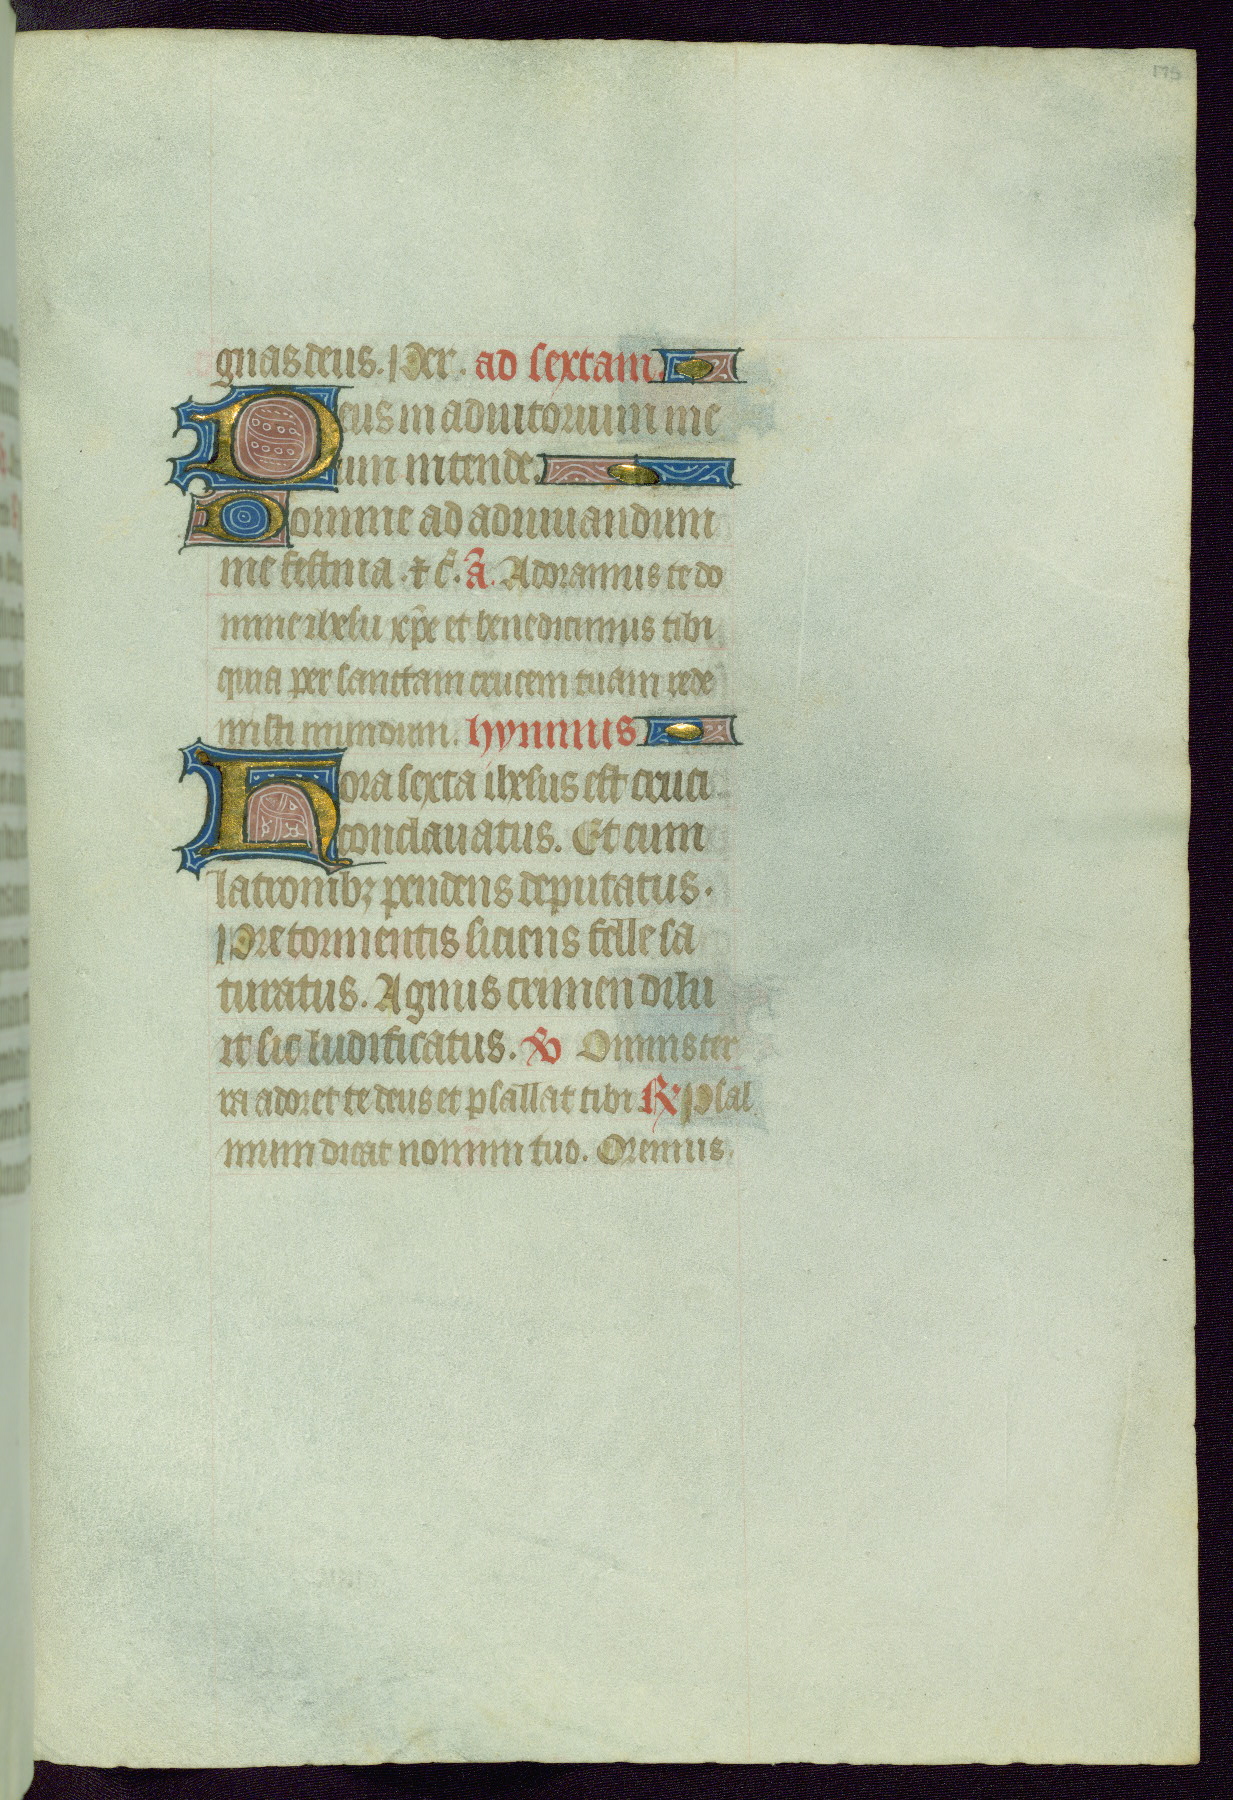 175
gnas deus. Per. ad sextam.
Deus in adiutorium me
um intende.
Domine ad adiuuandum
me festina. ⁊ c̃. ã. Adoramus te do
mine ihesu xp̃e et benedicimus tibi
quia per sanctam crucem tuam rede
misti mundum. hymnus
Hora sexta ihesus est cruci
conclauatus. Et cum
latronibꝫ pendens deputatus.
Pre tormentis siciens felle sa
turatus. Agnus crimen dilu
it sic ludificatus. ℣ Omnis ter
ra adoret te deus et psallat tibi ℟ Psal
mum dicat nomini tuo. Oremus.